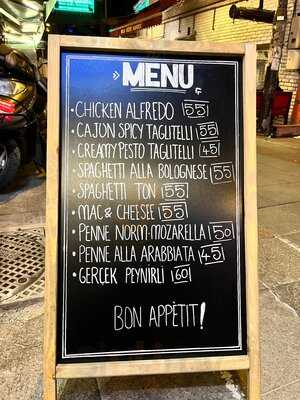 MENU
• CHICKEN ALFREDO 55
• CAJUN SPICY TAGLITELLI 55
• CREAMY PESTO TAGLITELLI 45
• SPAGHETTI ALLA BOLOGNESE 55
• SPAGHETTI TON 55
• MAC & CHEESEE 55
• PENNE NORM-MOZARELLA 50
• PENNE ALLA ARABBIATA 45
• GERÇEK PEYNİRLİ 60
BON APPÈTIT!